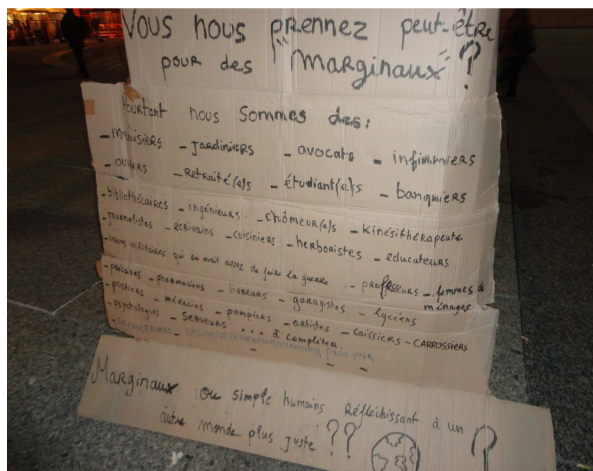 Vous nous prennez peut-être
pour des "marginaux" ?
Pourtant nous sommes des:
- menuisiers - jardiniers - avocats - infirmiers
- ouvriers - retraité(e)s - étudiant(e)s - banquiers
- bibliothécaires - ingénieurs - chômeur(e)s - kinésithérapeute
- journalistes - écrivains - cuisiniers - herboristes - educateurs
militaires qui en avait assez de faire la guerre - professeurs - femmes de
ménages
- précaires - pharmaciens - livreurs - garagistes - lycéens
- postiers - médecins - pompiers - artistes - caissiers - CARROSSIERS
- psychologues - serveurs ... à compléter
Marginaux ou simple humains Réfléchissant à un
autre monde plus juste ?? ?